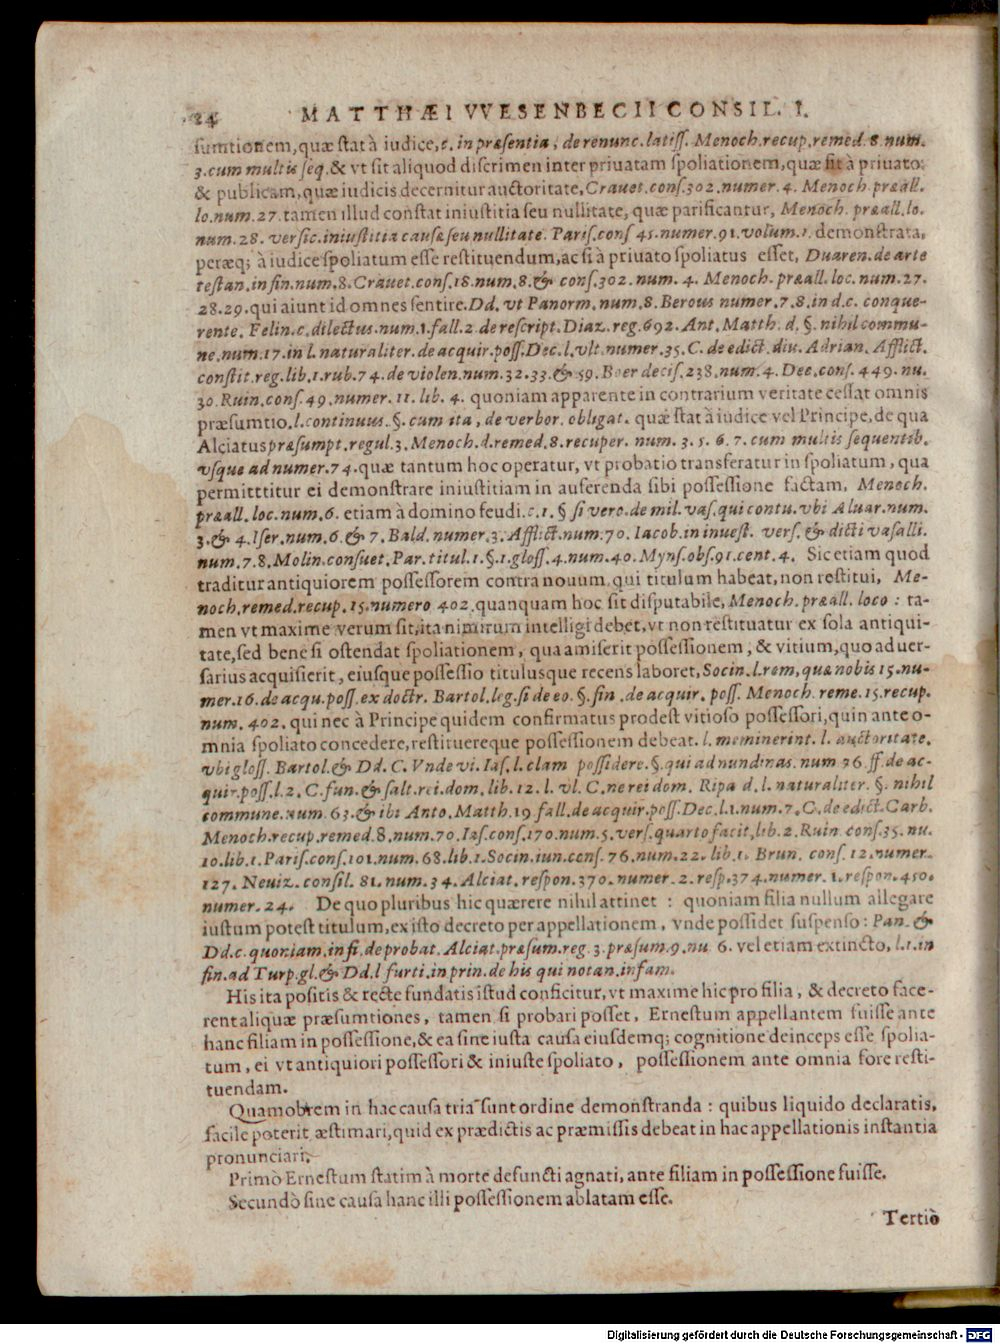 24 MATTHÆI VVESENBECII CONSIL. I.
sumtionem, quæ stat à iudice, c. in præsentia, de renunc. latiss. Menoch. recup. remed. 8. num.
3. cum multis seq. & vt sit aliquod discrimen inter priuatam spoliationem, quæ fit à priuato:
& publicam, quæ iudicis decernitur auctoritate, Crauet. cons. 302. numer. 4. Menoch. præall.
lo. num. 27. tamen illud constat iniustitia seu nullitate, quæ parificantur, Menoch. præall. lo.
num. 28. versic. iniustitia causa seu nullitate. Paris. cons 45. numer. 91. volum. 1. demonstrata,
peræq; à iudice spoliatum esse restituendum, ac si à priuato spoliatus esset, Duaren. de arte
testan. in fin. num. 8. Crauet. cons. 18. num. 8. & cons. 302. num. 4. Menoch. præall. loc. num. 27.
28. 29. qui aiunt id omnes sentire. Dd. vt Panorm. num. 8. Berous numer. 7. 8. in d. c. conque-
rente. Felin. c. dilectus. num. 1. fall. 2. de rescript. Diaz. reg. 692. Ant. Matth. d. §. nihil commu-
ne. num. 17. in l. naturaliter. de acquir. poss. Dec. l. vlt. numer. 35. C. de edict. diu. Adrian. Afflict.
constit. reg. lib. 1. rub. 74. de violen. num. 32. 33. & 59. Boer decis. 238. num. 4. Dec. cons. 449. nu.
30. Ruin. cons. 49. numer. 11. lib. 4. quoniam apparente in contrarium veritate cessat omnis
præsumtio. l. continuus. §. cum ita, de verbor. obligat. quæ stat à iudice vel Principe, de qua
Alciatus præsumpt. regul. 3. Menoch. d. remed. 8. recuper. num. 3. 5. 6. 7. cum multis sequentib.
vsque ad numer. 74. quæ tantum hoc operatur, vt probatio transferatur in spoliatum, qua
permitttitur ei demonstrare iniustitiam in auferenda sibi possessione factam, Menoch.
præall. loc. num. 6. etiam à domino feudi. c. 1. § si vero. de mil. vas. qui contu. vbi Aluar. num.
3. & 4. Iser. num. 6. & 7. Bald. numer. 3. Afflict. num. 70. Iacob. in inuest. vers. & dicti vasalli.
num. 7. 8. Molin. consuet. Par. titul. 1. §. 1. gloss. 4. num. 40. Myns. obs. 91. cent. 4. Sic etiam quod
traditur antiquiorem possessorem contra nouum, qui titulum habeat, non restitui, Me-
noch. remed. recup. 15. numero 402. quanquam hoc sit disputabile, Menoch. præall. loco : ta-
men vt maxime verum sit, ita nimirum intelligi debet, vt non restituatur ex sola antiqui-
tate, sed bene si ostendat spoliationem, qua amiserit possessionem, & vitium, quo aduer-
sarius acquisierit, eiusque possessio titulusque recens laboret, Socin. l. rem, quæ nobis 15. nu-
mer. 16. de acqu. poss. ex doctr. Bartol. leg. si de eo. §. fin. de acquir. poss. Menoch. reme. 15. recup.
num. 402. qui nec à Principe quidem confirmatus prodest vitioso possessori, quin ante o-
mnia spoliato concedere, restituereque possessionem debeat. l. meminerint. l. auctoritate.
vbi gloss. Bartol. & Dd. C. Vnde vi. Ias. l. clam possidere. §. qui ad nundinas. num 36. ff. de ac-
quir. poss. l. 2. C. fun. & salt. rei. dom. lib. 12. l. vl. C. ne rei dom. Ripa d. l. naturaliter. §. nihil
commune. num. 63. & ibi Anto. Matth. 19 fall. de acquir. poss. Dec. l. 1. num. 7. C. de edict. Carb.
Menoch. recup. remed. 8. num. 70. Ias. cons. 170. num. 5. vers. quarto facit, lib. 2. Ruin. cons. 35. nu.
10. lib. 1. Paris. cons. 101. num. 68. lib. 1. Socin. iun. cons. 76. num. 22. lib. 1. Brun. cons. 12. numer.
127. Neuiz. consil. 81. num. 34. Alciat. respon. 370. numer. 2. resp. 374. numer. 1. respon. 450.
numer. 24. De quo pluribus hic quærere nihil attinet : quoniam filia nullum allegare
iustum potest titulum, ex isto decreto per appellationem, vnde possidet suspenso : Pan. &
Dd. c. quoniam. in fi. de probat. Alciat. præsum. reg. 3. præsum. 9. nu 6. vel etiam extincto, l. 1. in
fin. ad Turp. gl. & Dd. l furti. in prin. de his qui notan. infam.
His ita positis & recte fundatis istud conficitur, vt maxime hic pro filia, & decreto face-
rent aliquæ præsumtiones, tamen si probari posset, Ernestum appellantem fuisse ante
hanc filiam in possessione, & ea sine iusta causa eiusdemq; cognitione deinceps esse spolia-
tum, ei vt antiquiori possessori & iniuste spoliato, possessionem ante omnia fore resti-
tuendam.
Quamobrem in hac causa tria sunt ordine demonstranda : quibus liquido declaratis,
facile poterit æstimari, quid ex prædictis ac præmissis debeat in hac appellationis instantia
pronunciari.
Primò Ernestum statim à morte defuncti agnati, ante filiam in possessione fuisse.
Secundò sine causa hanc illi possessionem ablatam esse.
Tertiò
Digitalisierung gefördert durch die Deutsche Forschungsgemeinschaft - DFG